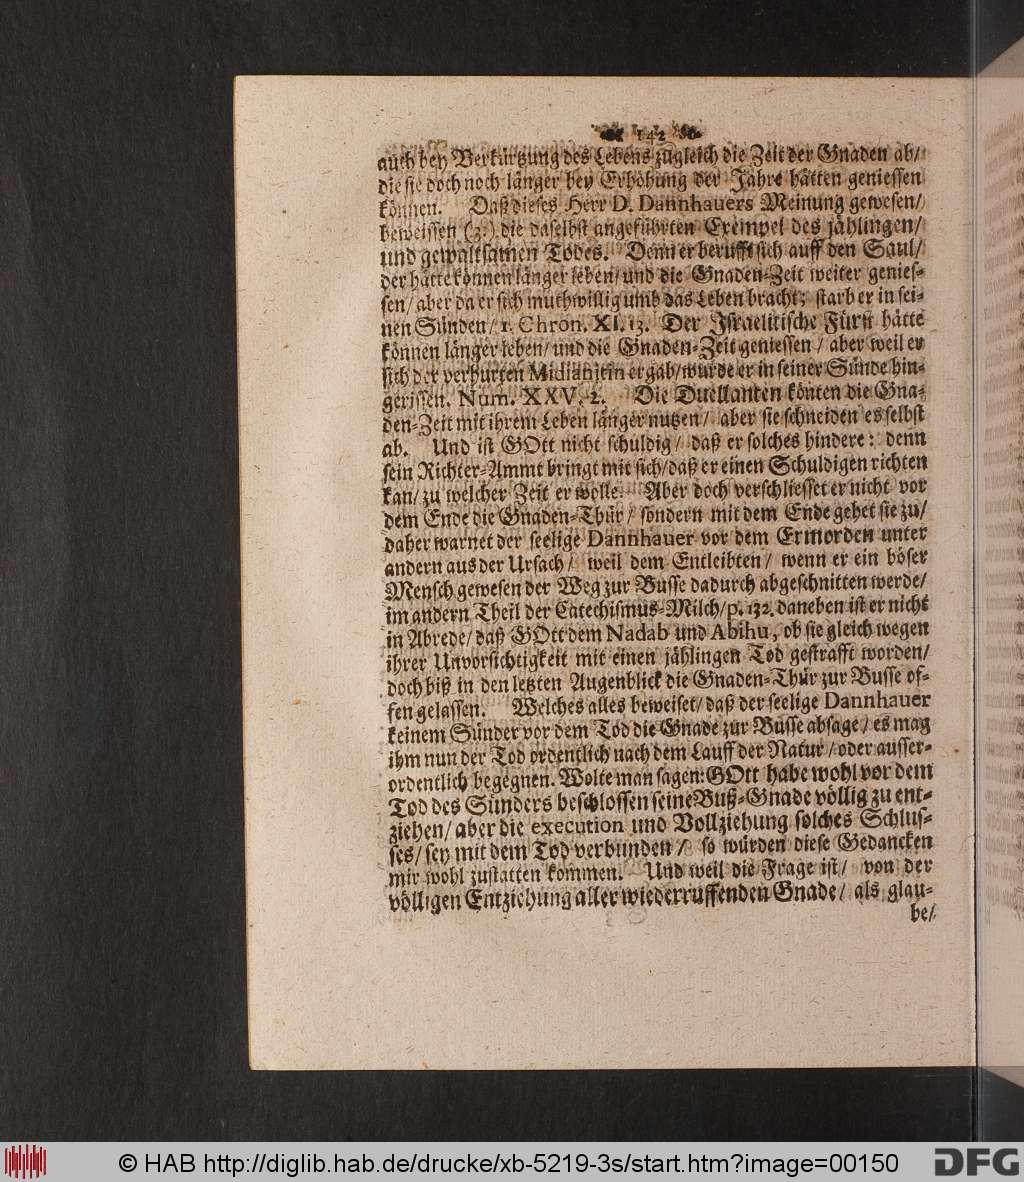 142
auch bey Verkürtzung des Lebens zugleich die Zeit der Gnaden ab/
die sie doch noch länger bey Erhöhung der Jahre hätten geniessen
können. Daß dieses Herr D. Dannhauers Meinung gewesen/
beweissen (3.) die daselbst angeführten Exempel des jählingen/
und gewaltsamen Todes. Denn er berufft sich auff den Saul/
der hätte können länger leben/ und die Gnaden-Zeit weiter genies-
sen/ aber da er sich muthwillig umb das Leben bracht; starb er in sei-
nen Sünden/ 1. Chron. XI. 13. Der Israelitische Fürst hätte
können länger leben/ und die Gnaden-Zeit geniessen/ aber weil er
sich der verhurten Midianitin ergab/ wurde er in seiner Sünde hin-
gerissen. Num. XXV. 2. Die Duellanten könten die Gna-
den-Zeit mit ihrem Leben länger nutzen/ aber sie schneiden es selbst
ab. Und ist GOtt nicht schuldig/ daß er solches hindere: denn
sein Richter-Ammt bringt mit sich/ daß er einen Schuldigen richten
kan/ zu welcher Zeit er wolle. Aber doch verschliesset er nicht vor
dem Ende die Gnaden-Thür/ sondern mit dem Ende gehet sie zu/
daher warnet der seelige Dannhauer vor dem Ermorden unter
andern aus der Ursach/ weil dem Entleibten/ wenn er ein böser
Mensch gewesen der Weg zur Busse dadurch abgeschnitten werde/
im andern Theil der Catechismus-Milch/ p. 132. daneben ist er nicht
in Abrede/ daß GOtt dem Nadab und Abihu, ob sie gleich wegen
ihrer Unvorsichtigkeit mit einen jählingen Tod gestrafft worden/
doch biß in den letzten Augenblick die Gnaden-Thür zur Busse of-
fen gelassen. Welches alles beweiset/ daß der seelige Dannhauer
keinem Sünder vor dem Tod die Gnade zur Busse absage/ es mag
ihm nun der Tod ordentlich nach dem Lauff der Natur/ oder ausser-
ordentlich begegnen. Wolte man sagen: GOtt habe wohl vor dem
Tod des Sünders beschlossen seine Buß-Gnade völlig zu ent-
ziehen/ aber die execution und Vollziehung solches Schlus-
ses/ sey mit dem Tod verbunden/ so würden diese Gedancken
mir wohl zustatten kommen. Und weil die Frage ist/ von der
völligen Entziehung aller wiederruffenden Gnade/ als glau-
be/
© HAB http://diglib.hab.de/drucke/xb-5219-3s/start.htm?image=00150
DFG